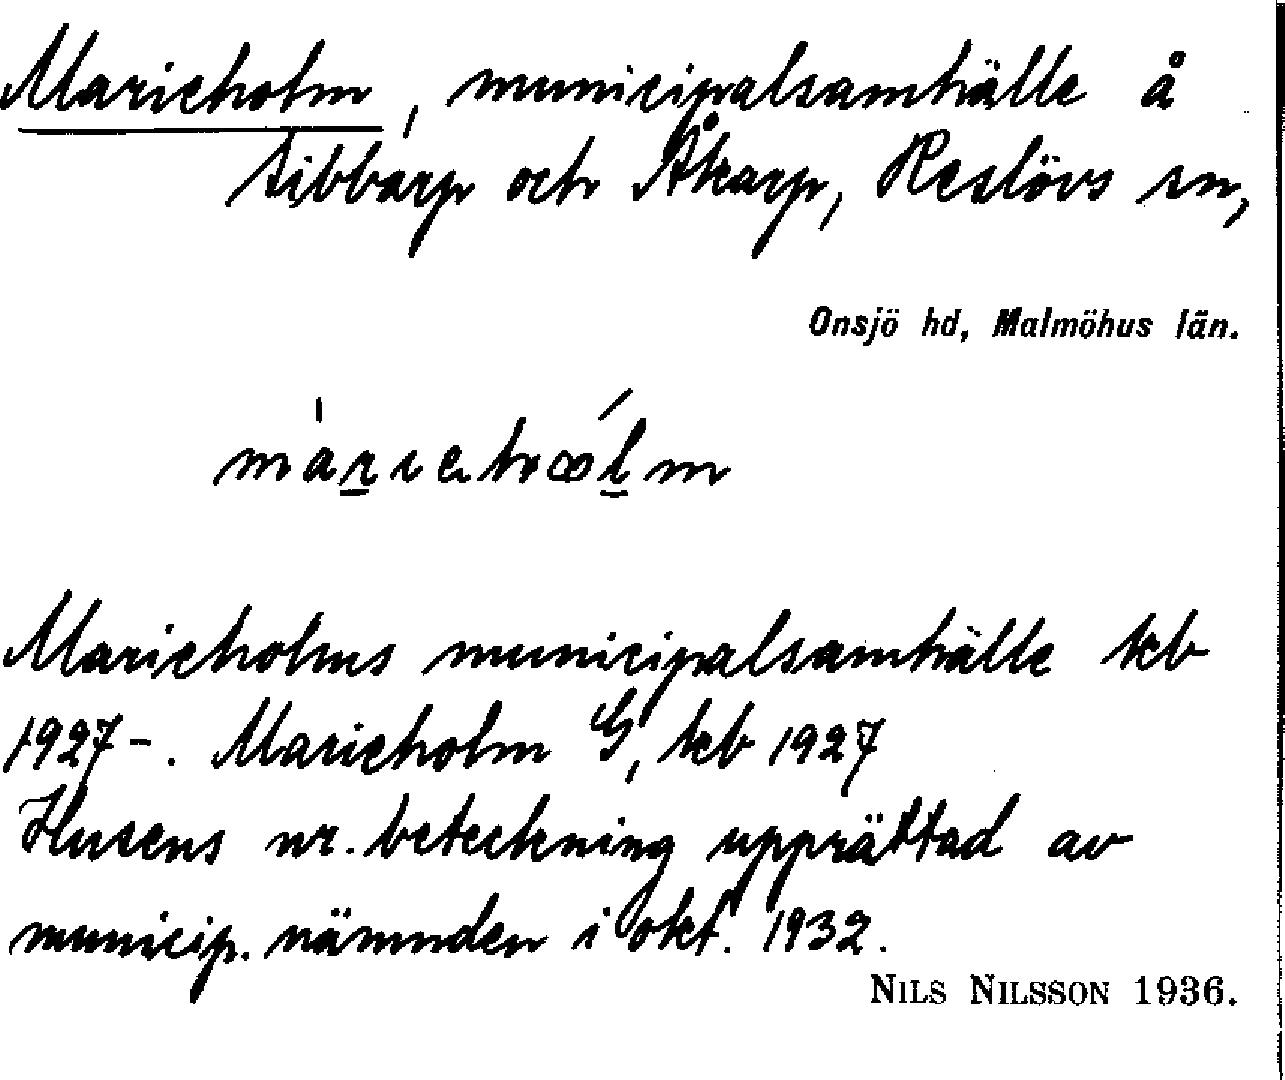 Marieholm, municipalsamhälle å
Sibbarp och Åkarp, Reslövs sn,
Onsjö hd, Malmöhus län.
Marieholms municipalsamhälle kb
1927-. Marieholm G, kb 1927
Husens nr. beteckning upprättad av
municip. nämnden i okt. 1932.
NILS NILSSON 1936.